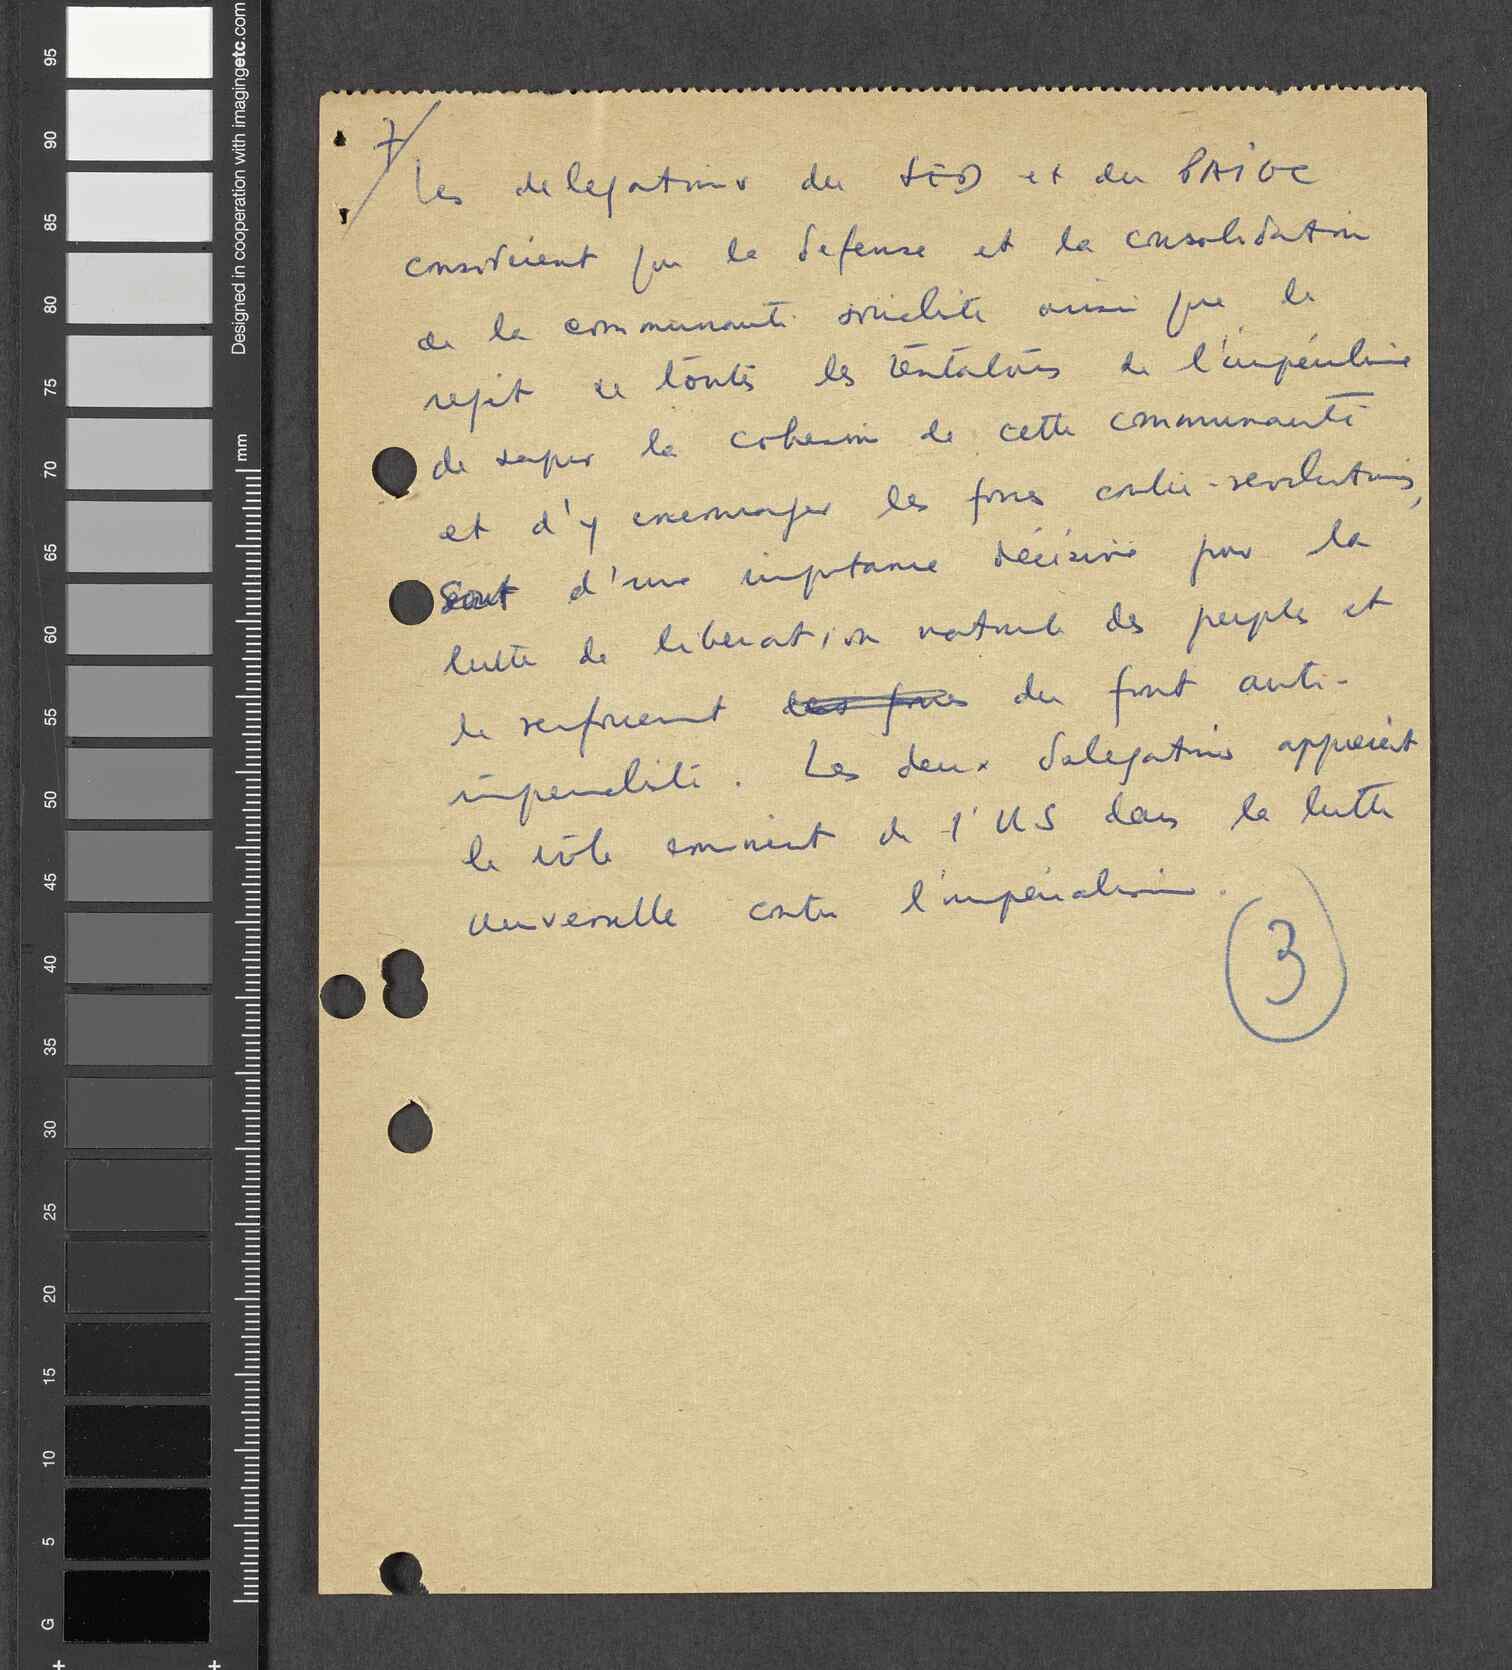 95
90
85
80
75
70
65
60
55
50
45
40
35
30
25
20
15
10
5
G
Designed in cooperation with imagingetc.com
mm
7/
Les delegations du SED et du PAIGC
considèrent que la defense et la consolidation
de la communauté socialiste ainsi que le
rejet de toutes les tentatives de l'impérialisme
de saper la cohesion de cette communauté
et d'y encourager les forces contre-revolutionnaires,
sont d'une importance décisive pour la
lutte de liberation nationale des peuples et
le renforcement des forces du front anti-
imperialiste. Les deux delegations apprécient
le rôle eminent de l'US dans la lutte
universelle contre l'impérialisme.
3